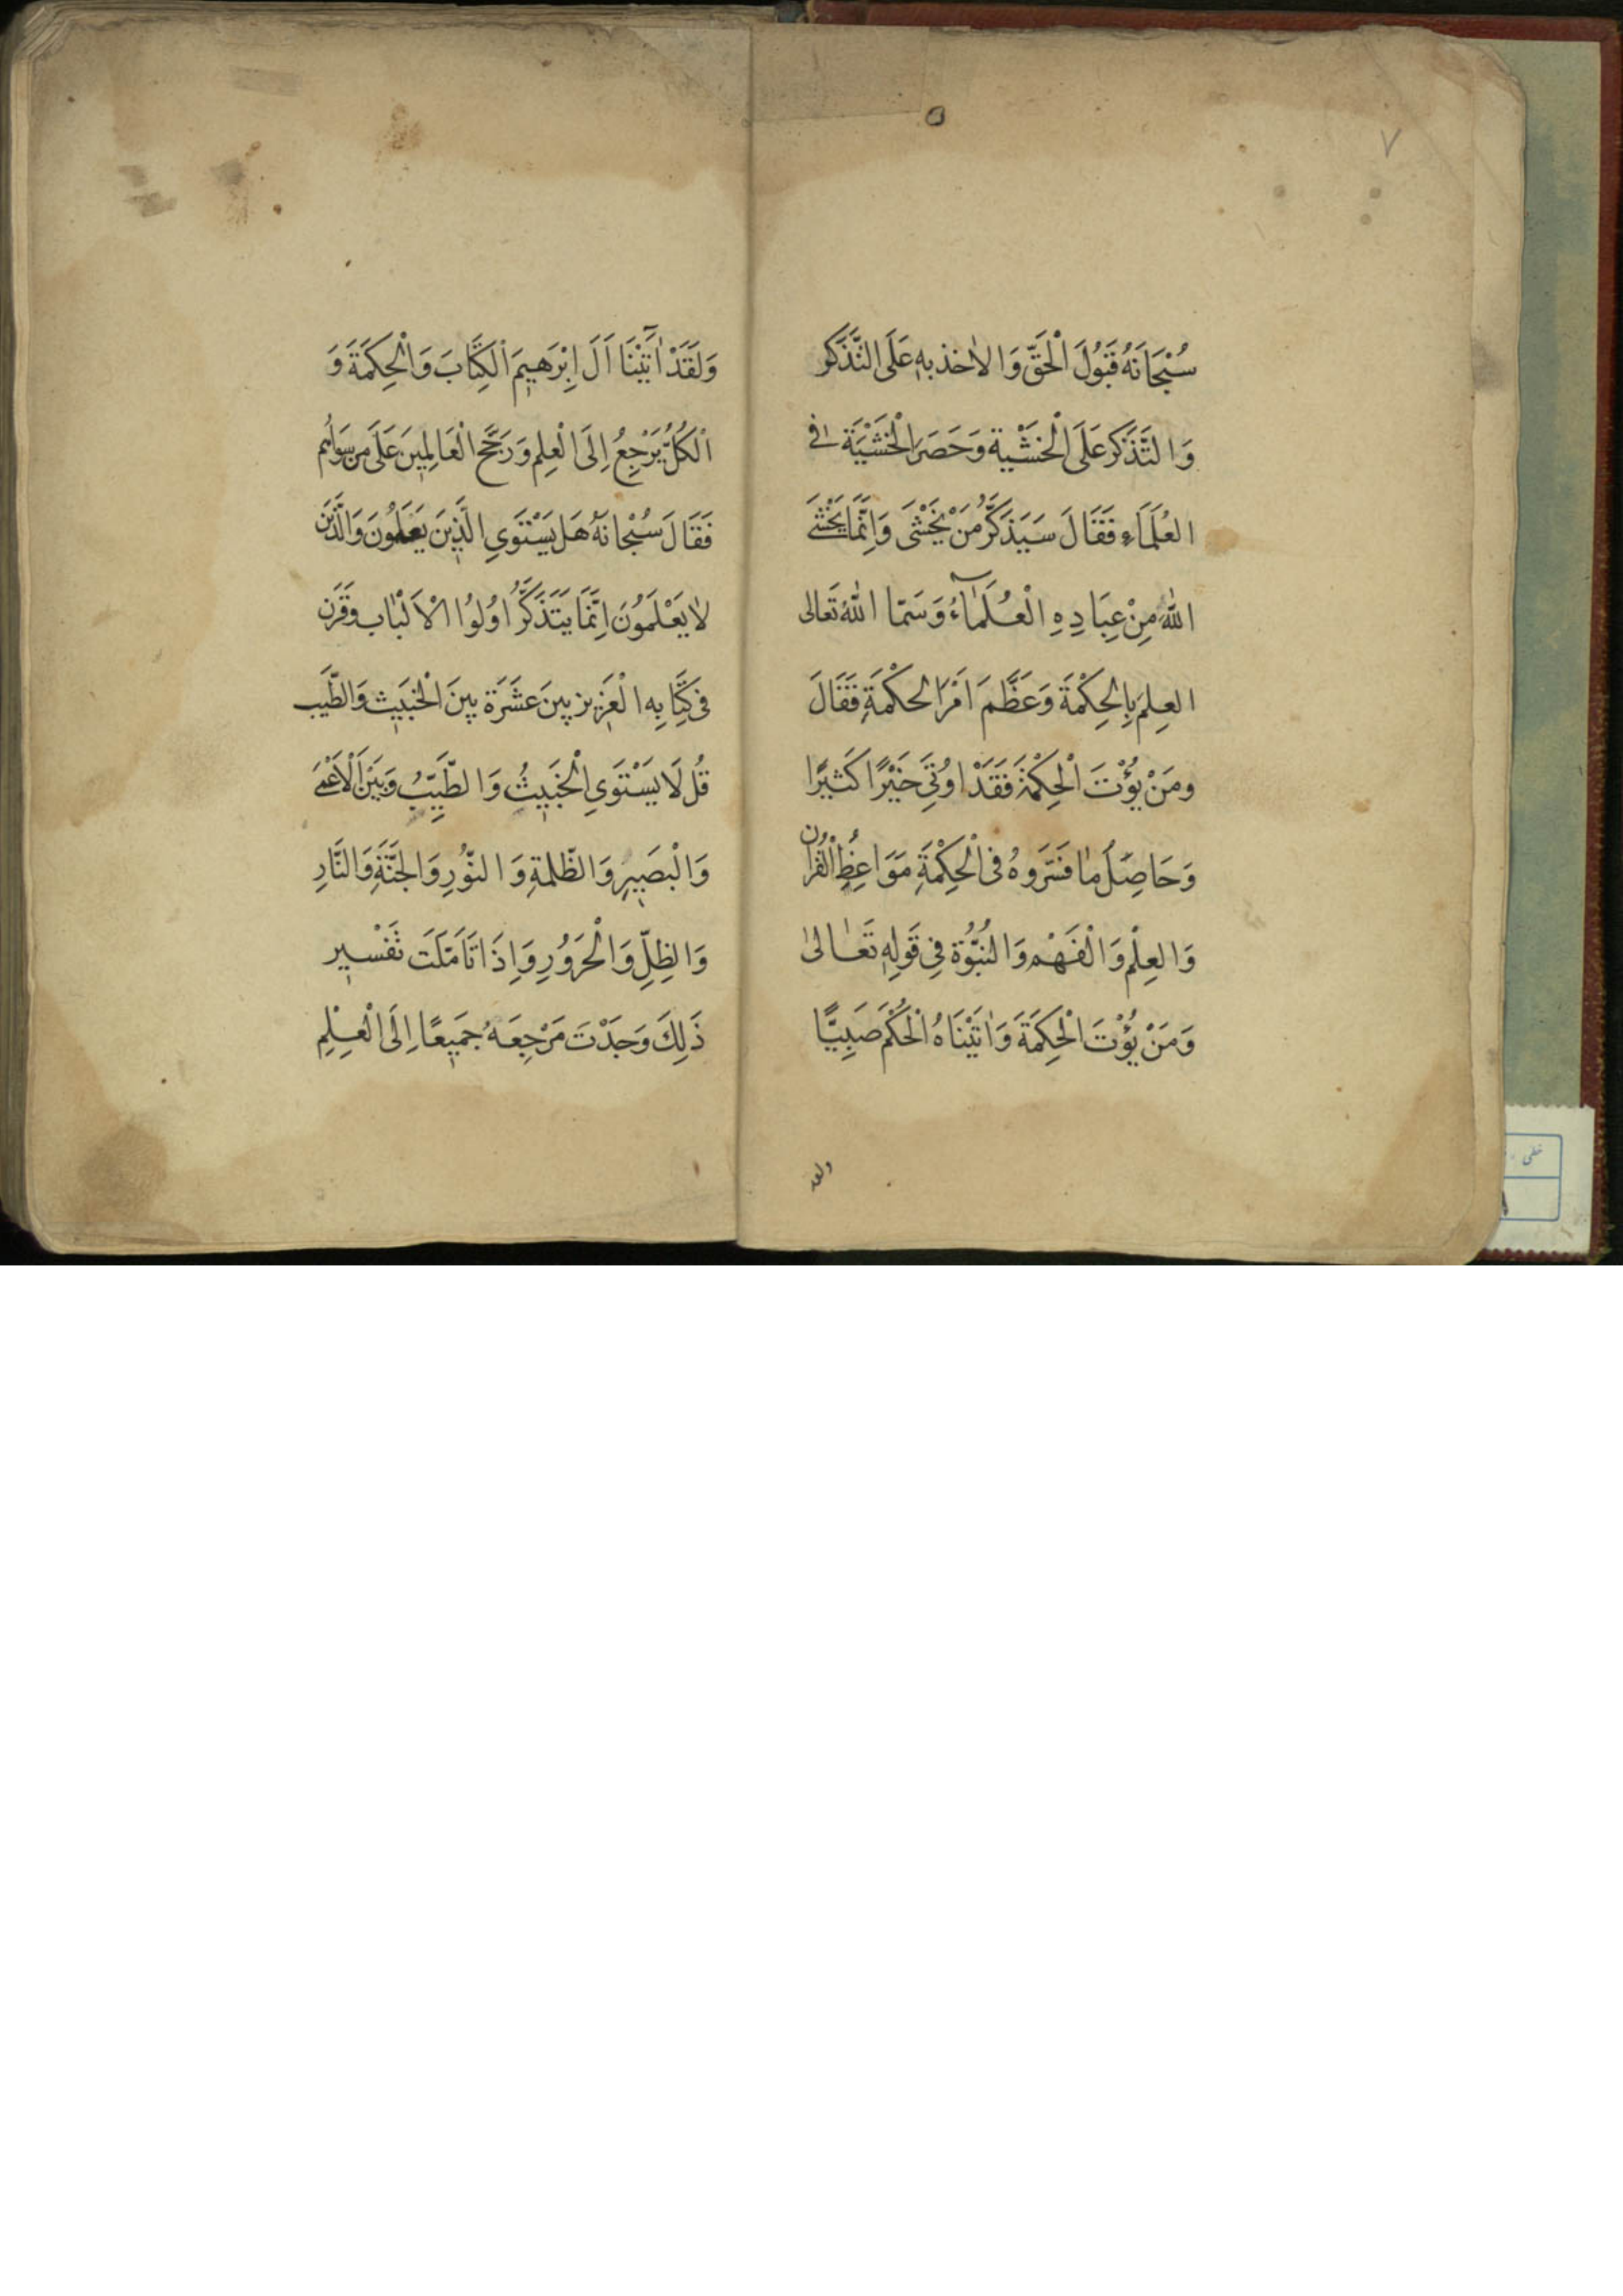 ٧
سُبْحَانَهُ قَبُولَ الْحَقِّ وَالاٰخذ بِهِ عَلَى التَّذَكُّر
وَالتَّذَكُّر عَلَى الْخَشْيَة وَحَصَرَ الْخَشْيَةَ فِى
العُلَمَاءِ فَقَالَ سَيَذَكَّرُ مَنْ يَخْشَى وَاِنَّمَا يَخْشَى
اللّٰهَ مِنْ عِبَادِهِ الْعُلَمَاٰۤءُ وَسَمّا اللّٰهُ تَعَالى
العِلمَ بِالحِكْمَةَ وَعَظَّمَ اَمْرَ الحكْمَةِ فَقَالَ
ومَنْ يُؤْتَ الْحِكْمَةَ فَقَدْ اوُتِيَ خَيْرًا كَثيرًا
وَحَاصِلُ مٰا فَسَّرَوهُ فى الْحِكْمَةِ مَوَاعِظُ الْقُرْان
وَالعِلْم وَالْفَهْم وَالنُّبُّوَة فِى قَولِهِ تَعَٰالىٰ
وَمَنْ يُؤْتَ الْحِكمَةَ وَاٰتَيْنَاهُ الْحُكْمَ صَبِيًّا
ولقد
وَلَقَدْ اٰتَيْنَا اٰلَ اِبْرَهيمَ الْكِتَابَ وَالْحِكمَةَ وَ
الْكُلُّ يَرْجِعُ اِلَى الْعِلم وَرَجَّحَ الْعَالِمينَ عَلَى من سِوَاهُم
فَقَالَ سُبْحانَهُ هَل يَسْتَوَي الَّذينَ يَعلَمُونَ وَالَّذينَ
لاٰ يَعْلَمَوُنَ اِنَّمَا يَتَذَكَّرُ اوُلوُا الْاَلْبٰاب وقَرَن
فى كِتَابِهِ الْعَزيز بينَ عَشَرَة بينَ الْخبَيث وَالطَّيِّب
قُل لَا يَسْتَوَي الْخَبيثُ وَالطَّيِّبُ وَبَيْنَ الْاَعْمَى
وَالْبَصَيرِ وَالظّلمةِ وَالنّوُرِ وَالجَنَّةِ وَالنَّارِ
وَالظِلِّ وَالْحَروُرِ وَاِذَا تَاَمَّلَتَ تَفْسير
ذَلِكَ وَجَدْتَ مَرْجِعَهُ جَميعًا اِلَى الْعِلْمِ